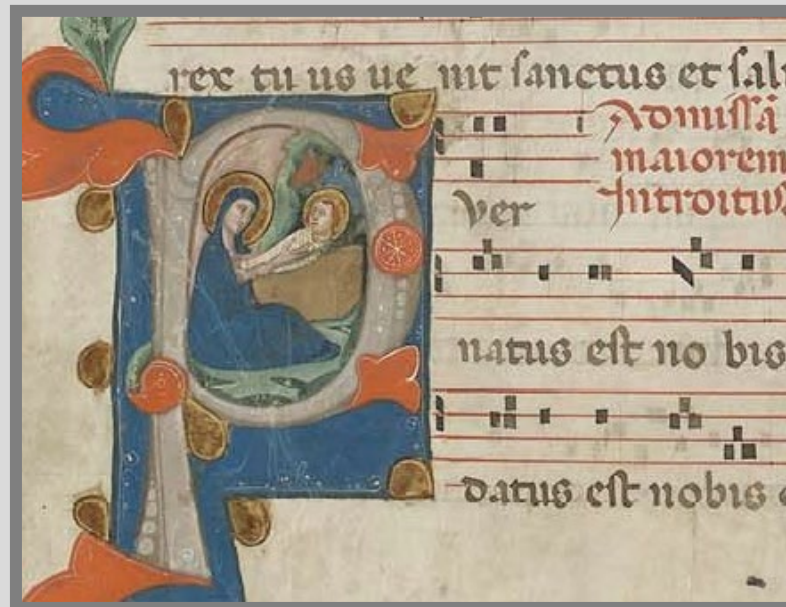 rex tu us ue nit sanctus et sal
Ad missā
maiorem
Introitus
ver
natus est no bis
datus est nobis